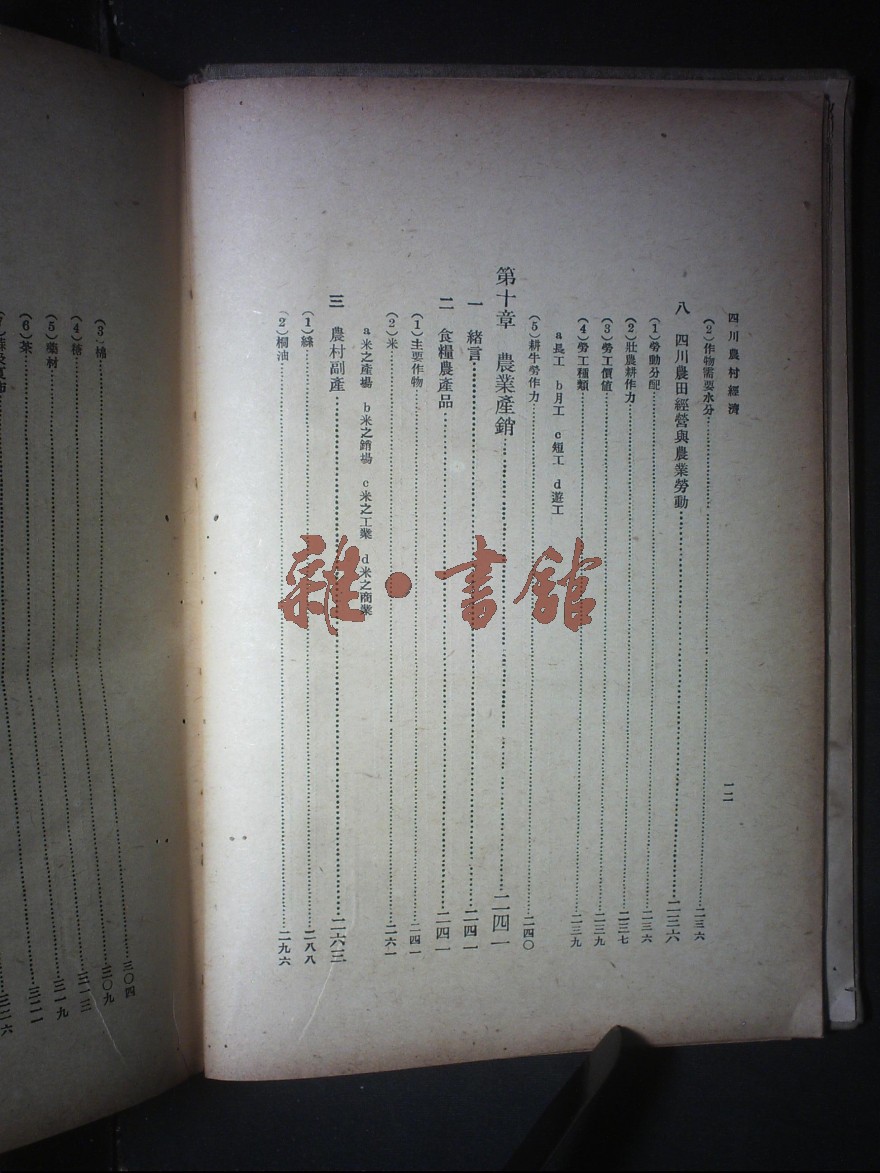 四川農村經濟
一二
(2)作物需要水分……二三六
八 四川農田經營與農業勞動……二三六
(1)勞動分配……二三六
(2)壯農耕作力……二三七
(3)勞工價值……二三九
(4)勞工種類……二三九
a長工 b月工 c短工 d遊工
(5)耕牛勞作力……二四〇
第十章 農業產銷……二四一
一 緒言……二四一
二 食糧農產品……二四一
(1)主要作物……二四一
(2)米……二六一
a米之產場 b米之銷場 c米之工業 d米之商業
三 農村副產……二六三
(1)絲……二八八
(2)桐油……二九六
(3)棉……三〇四
(4)糖……三〇九
(5)藥材……三一三
(6)茶……三一九
三二一
三二六
雜·書館